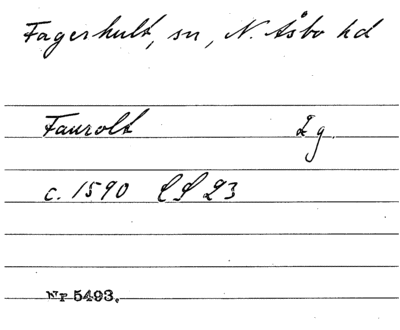 Fagerhult, sn, N. Åsbo hd
Faurolt 2 g.
c. 1590 LS 23
Nr 5493.